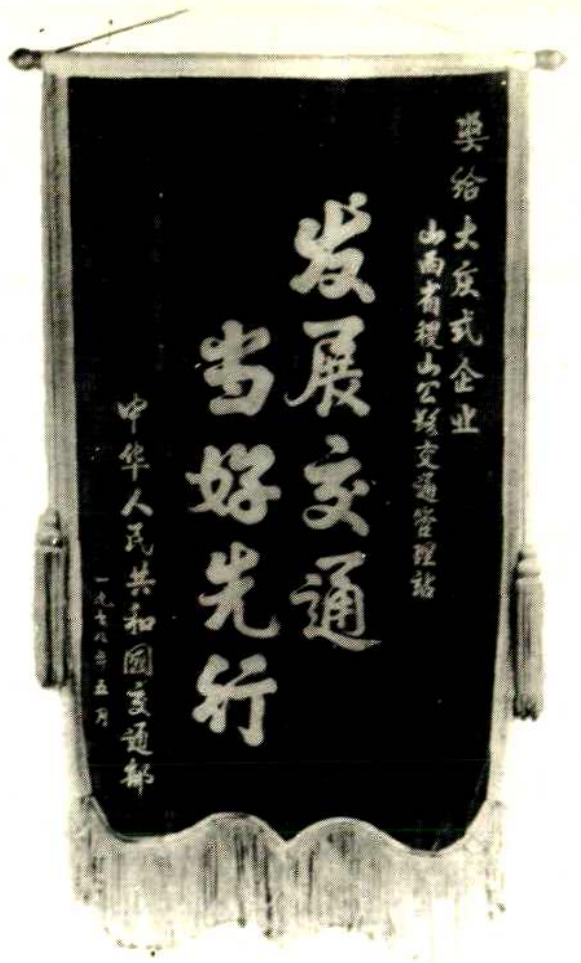 奖给大庆式企业
山西省稷山公路交通管理站
发展交通
当好先行
中华人民共和國交通部
一九七八年五月